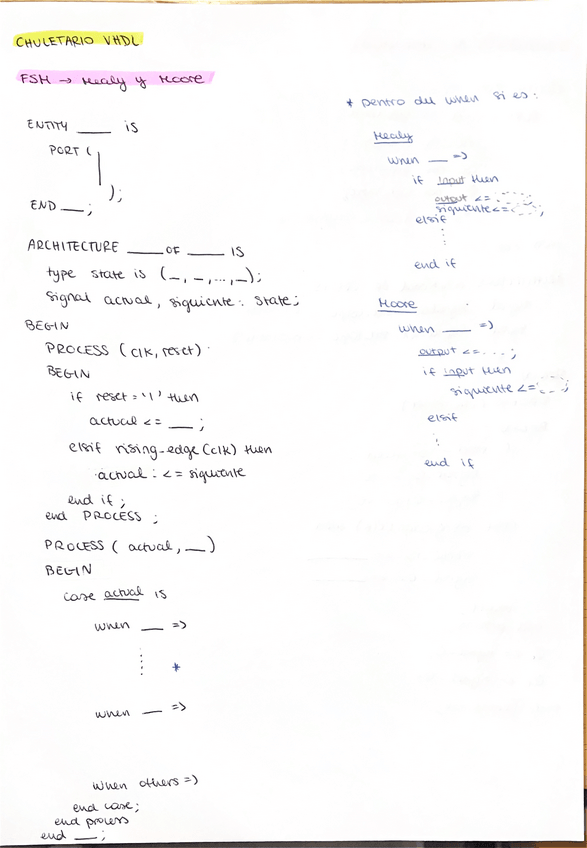 CHULETARIO VHDL
FSM → Mealy y Moore
ENTITY ____ is
PORT (
);
END ___;
ARCHITECTURE ____ OF ____ IS
type state is (_, _, ..., _);
signal actual, siguiente: state;
BEGIN
PROCESS (clk, reset)
BEGIN
if reset = '1' then
actual <= ___;
elsif rising_edge (clk) then
actual : <= siguiente
end if;
end PROCESS;
PROCESS ( actual, ___)
BEGIN
case actual is
when ___ =>
*
when ___ =>
when others =>
end case;
end process
end ___;
* Dentro del when si es:
Mealy
when ___ =>
if input then
output <= ...;
siguiente <= ...;
elsif
⋮
end if
Moore
when ____ =>
output <= ...;
if input then
siguiente <= ...;
elsif
⋮
end if